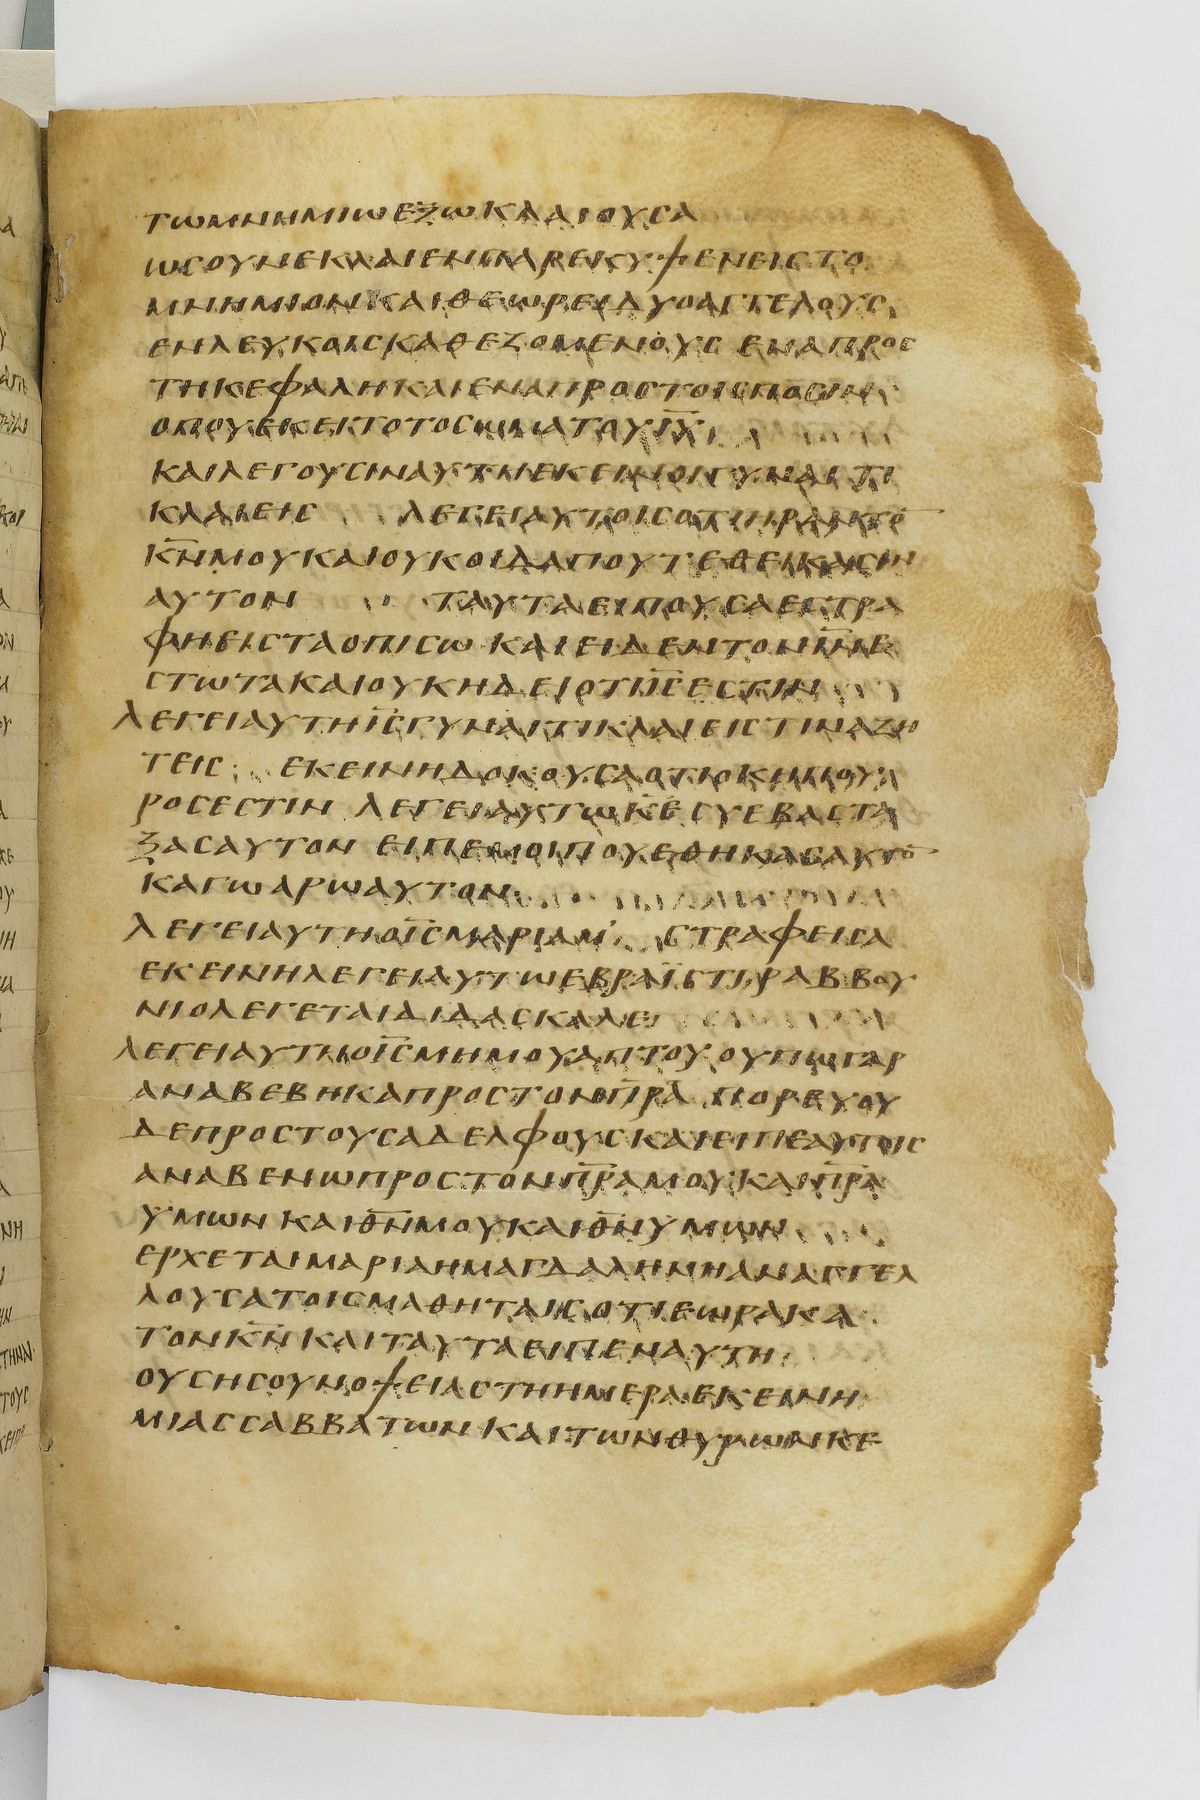 ΤωΜΝΗΜΙωΕΞωΚΛΑΙΟΥСΑ
ωСΟΥΝΕΚΛΑΙΕΝΠΑΡΕΚΥΨΕΝΕΙСΤΟ
ΜΝΗΜΙΟΝΚΑΙΘΕωΡΕΙΔΥΟΑΓΓΕΛΟΥС
ΕΝΛΕΥΚΟΙСΚΑΘΕΖΟΜΕΝΟΥСΕΝΑΠΡΟС
ΤΗΚΕΦΑΛΗΚΑΙΕΝΑΠΡΟСΤΟΙСΠΟСΙΝ
ΟΠΟΥΕΚΕΙΤΟΤΟСωΜΑΤΟΥΙ̅Υ̅
ΚΑΙΛΕΓΟΥСΙΝΑΥΤΗΕΚΕΙΝΟΙΓΥΝΑΙΤΙ
ΚΛΑΙΕΙС ΛΕΓΕΙΑΥΤΟΙСΟΤΙΗΡΑΝΤΟ̅
Κ̅Ν̅ΜΟΥΚΑΙΟΥΚΟΙΔΑΠΟΥΤΕΘΕΙΚΑСΙΝ
ΑΥΤΟΝ ΤΑΥΤΑΕΙΠΟΥСΑΕСΤΡΑ
ΦΗΕΙСΤΑΟΠΙСωΚΑΙΕΙΔΕΝΤΟΝΙ̅Ν̅Ε
СΤωΤΑΚΑΙΟΥΚΗΔΕΙΟΤΙΙ̅С̅ΕСΤΙΝ
ΛΕΓΕΙΑΥΤΗΙ̅С̅ΓΥΝΑΙΤΙΚΛΑΙΕΙСΤΙΝΑΖΗ
ΤΕΙС ΕΚΕΙΝΗΔΟΚΟΥСΑΟΤΙΟΚΗΠΟΥ
ΡΟСΕСΤΙΝ ΛΕΓΕΙΑΥΤωΚ̅Ε̅СΥΕΒΑСΤΑ
ΞΑСΑΥΤΟΝ ΕΙΠΕΜΟΙΠΟΥΕΘΗΚΑСΑΥΤΟ̅
ΚΑΓωΑΡωΑΥΤΟΝ
ΛΕΓΕΙΑΥΤΗΟΙ̅С̅ΜΑΡΙΑΜ' СΤΡΑΦΕΙСΑ
ΕΚΕΙΝΗΛΕΓΕΙΑΥΤωΕΒΡΑΪСΤΙΡΑΒΒΟΥ
ΝΙΟΛΕΓΕΤΑΙΔΙΔΑСΚΑΛΕ
ΛΕΓΕΙΑΥΤΗΟΙ̅С̅ΜΗΜΟΥΑΠΤΟΥΟΥΠωΓΑΡ
ΑΝΑΒΕΒΗΚΑΠΡΟСΤΟΝΠ̅Ρ̅Α̅ ΠΟΡΕΥΟΥ
ΔΕΠΡΟСΤΟΥСΑΔΕΛΦΟΥСΚΑΙΕΙΠΕΑΥΤΟΙС
ΑΝΑΒΕΝωΠΡΟСΤΟΝΠ̅Ρ̅Α̅ΜΟΥΚΑΙΠ̅Ρ̅Α̅
ΥΜωΝΚΑΙΘ̅Ν̅ΜΟΥΚΑΙΘ̅Ν̅ΥΜωΝ
ΕΡΧΕΤΑΙΜΑΡΙΑΗΜΑΓΔΑΛΗΝΗΑΝΑΓΓΕΛ
ΛΟΥСΑΤΟΙСΜΑΘΗΤΑΙСΟΤΙΕωΡΑΚΑ
ΤΟΝΚ̅Ν̅ΚΑΙΤΑΥΤΑΕΙΠΕΝΑΥΤΗ
ΟΥСΗСΟΥΝΟΨΕΙΑСΤΗΗΜΕΡΑΕΚΕΙΝΗ
ΜΙΑССΑΒΒΑΤωΝΚΑΙΤωΝΘΥΡωΝΚΕ